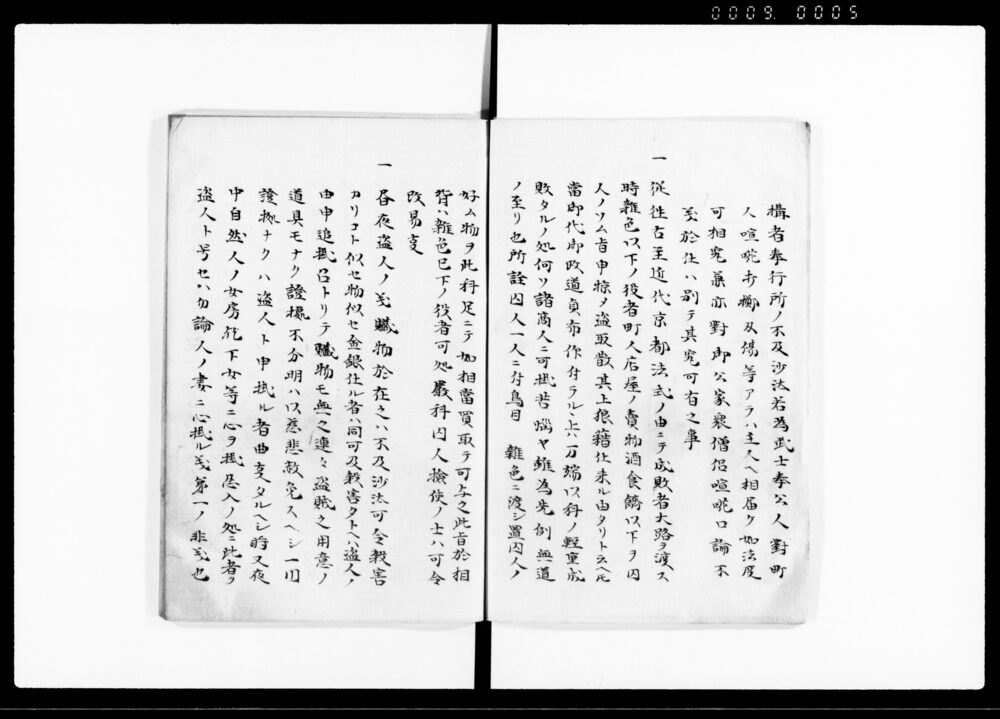 0009. 0005
搆者奉行所ノ不及沙汰若為武士奉公人對町
人喧𠵅打擲及傷等アラハ主人ヘ相届ケ如法度
可相究兼亦對御公家衆僧侶喧𠵅口論不
𠀋於仕ハ別テ其究可有之事
一 従徃古至近代京都法式ノ由ニテ成敗者大路ヲ渡ス
時雜色以下ノ役者町人店座ノ賣物酒食餅以下ヲ囚
人ノソム旨申掠メ盗取散其上狼藉仕来ル由タリト云ヘ𪜈
當御代御政道貞布作付ラルヽ上ハ万端以科ノ軽重成
敗タルノ処何ソ諸商人ニ可掛苦悩ヤ雖為先例無道
ノ至リ也所詮囚人一人ニ付鳥目 雜色ニ渡シ置囚人ノ
好ム物ヲ此科足ニテ如相當買取テ可与之此旨於相
背ハ雜色已下ノ役者可処嚴科囚人撿使ノ士ハ可令
改易叓
一 昼夜盗人ノ𠀋贓物於在之ハ不及沙汰可令殺害
カリコト似セ物似セ金銀仕ル者ハ同可及殺害タトヘハ盗人ノ
由申追掛召トリテ贓物モ無之連々盗賊之用意ノ
道具モナク證據不分明ハ以慈悲赦免スヘシ一円
證拠ナクハ盗人ト申掛ル者曲叓タルヘシ時又夜
中自然人ノ女房化下女等ニ心ヲ掛忍入ノ処ニ此者ヲ
盗人ト号セハ勿論人ノ妻ニ心掛ル𠀋第一ノ非𠀋也